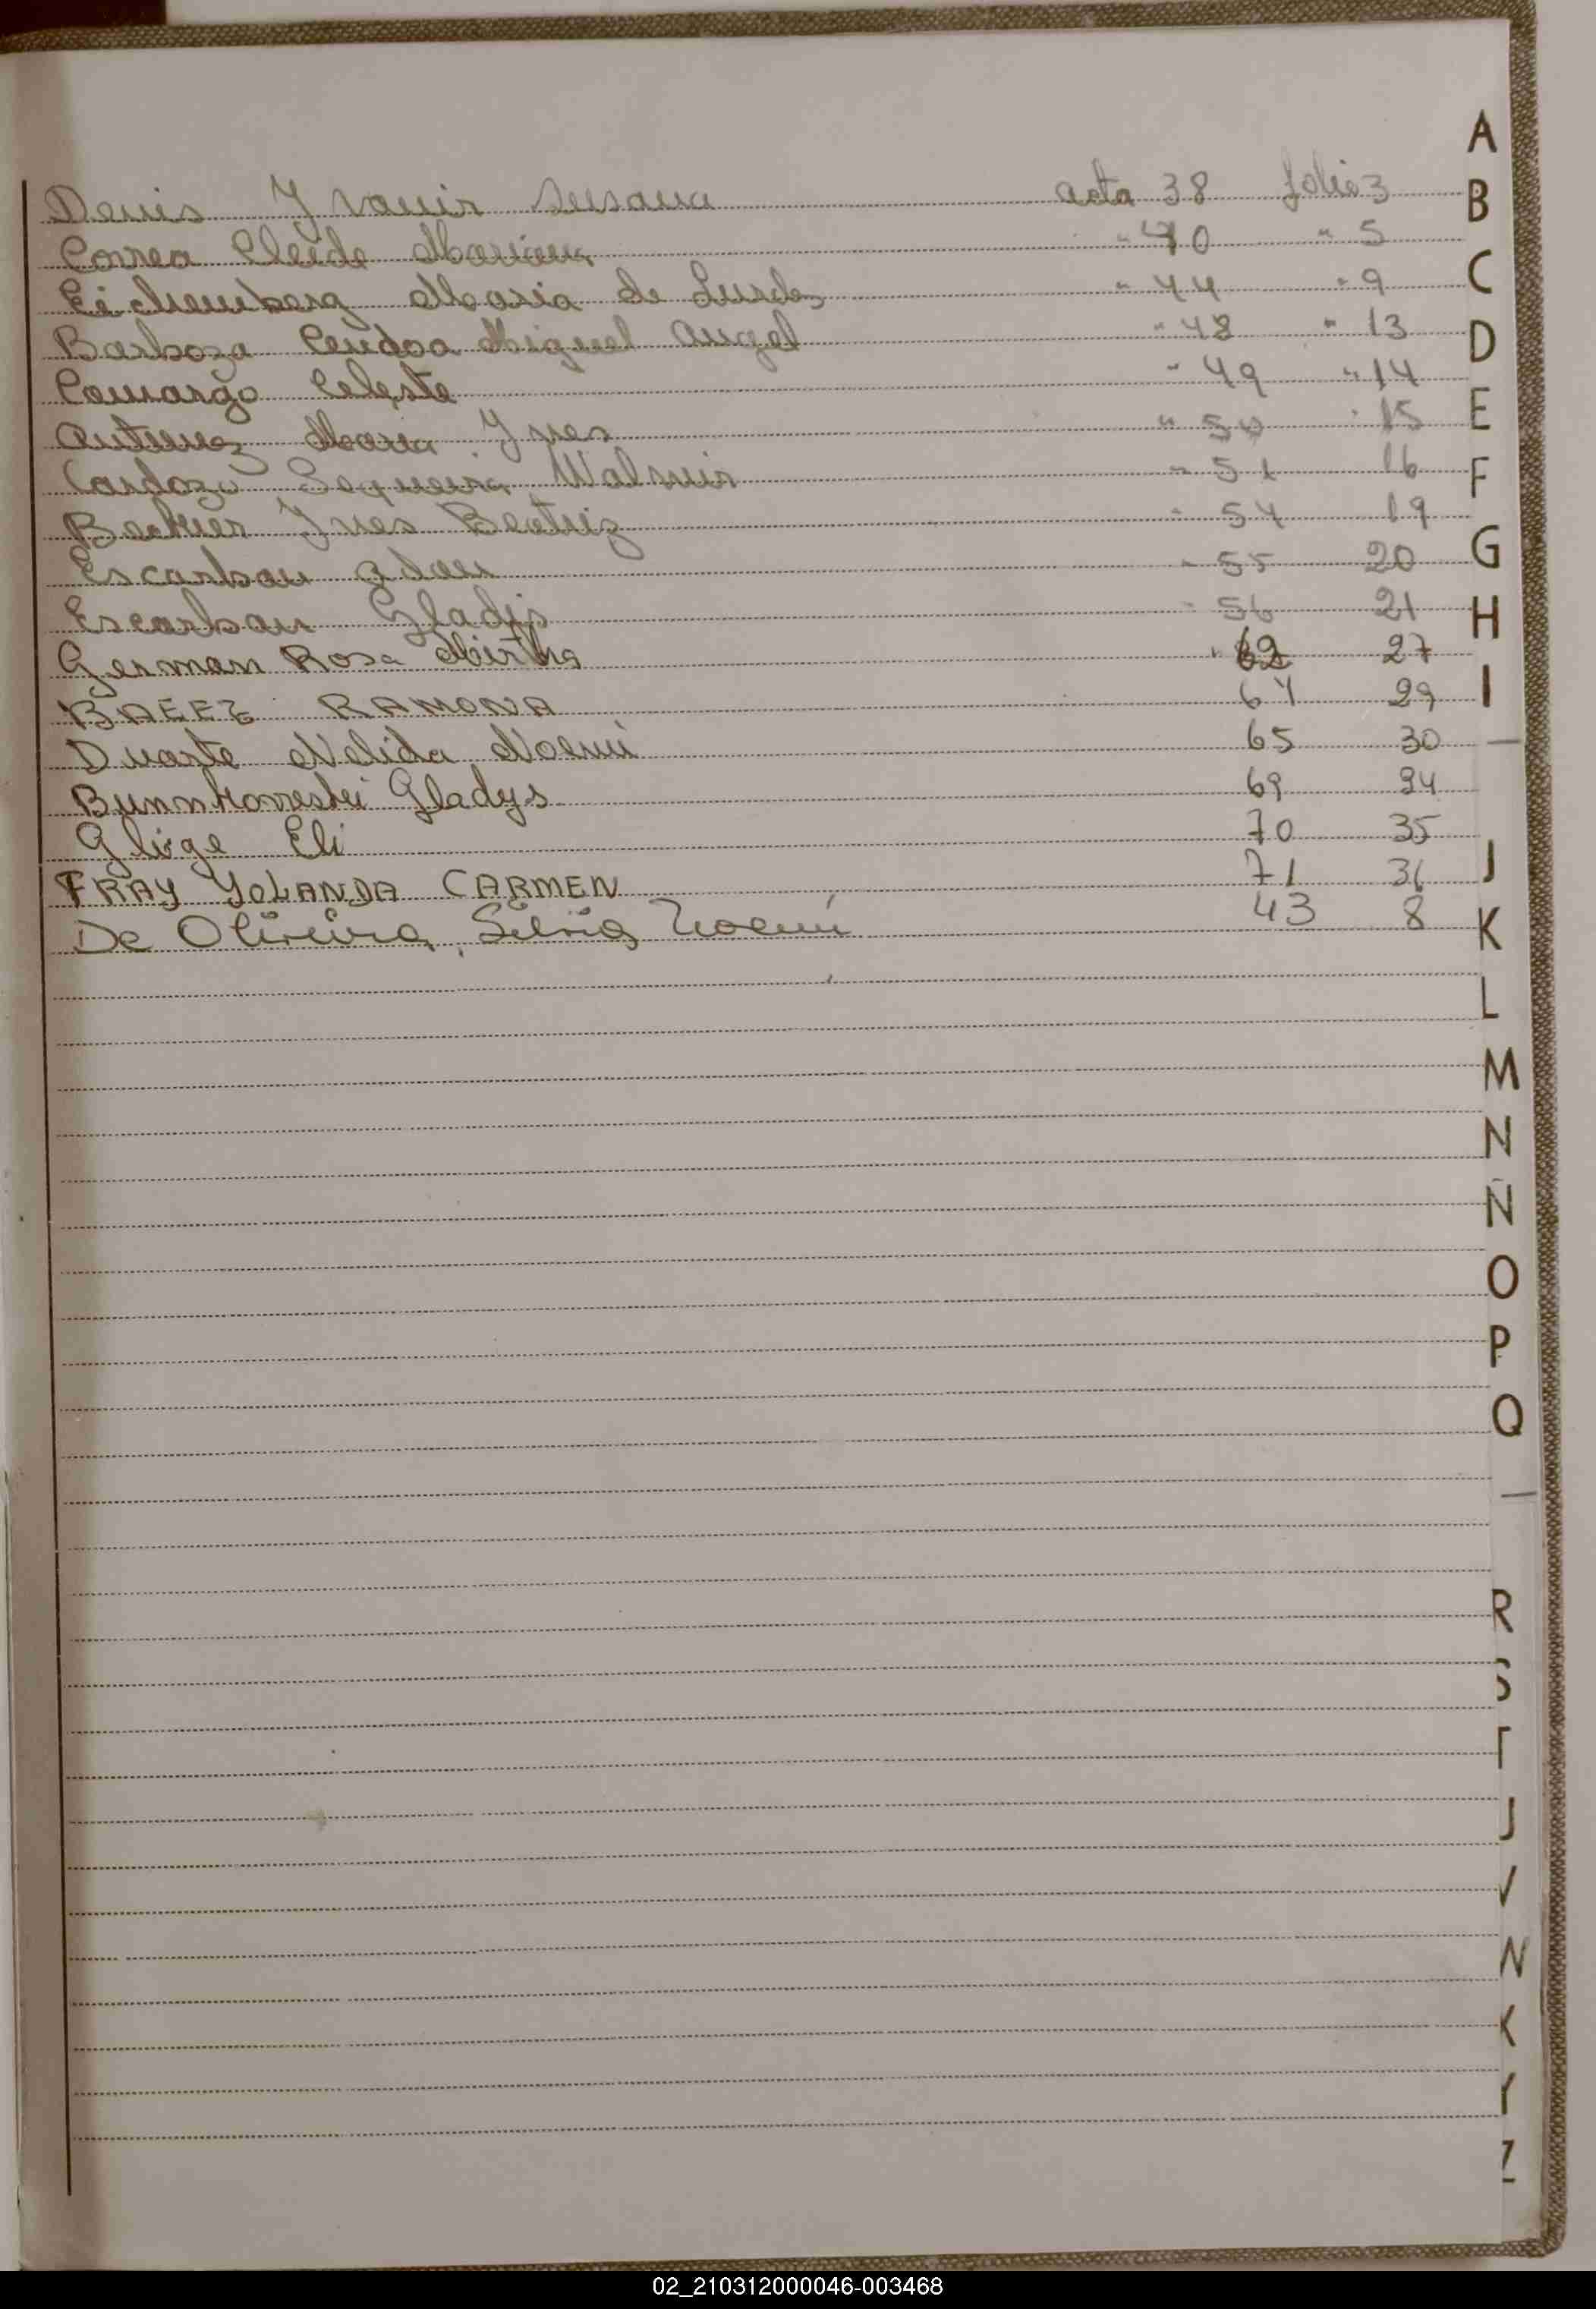 Denis Yvanir Susana acta 38 folio 3
Correa Cleide Mariana " 40 " 5
Eichemberg Maria de Lurdes " 44 " 9
Barboza Miguel Angel " 48 " 13
Camargo Celeste " 49 " 14
Antunez Maria Ynes " 50 " 15
Cardozo Sequeira Walmir " 51 16
Becker Ynes Beatriz " 54 19
Escarban Adan " 55 20
Escarban Gladis " 56 21
German Rosa Mirtha " 62 27
BAEEZ RAMONA 64 29
Duarte Nelida Noemi 65 30
Gladys 69 34
Glioge Eli 70 35
FRAY YOLANDA CARMEN 71 36
De Oliveira, Silvia Noemí 43 8
A
B
C
D
E
F
G
H
I
J
K
L
M
N
Ñ
O
P
Q
R
S
T
U
V
W
X
Y
Z
02_210312000046-003468